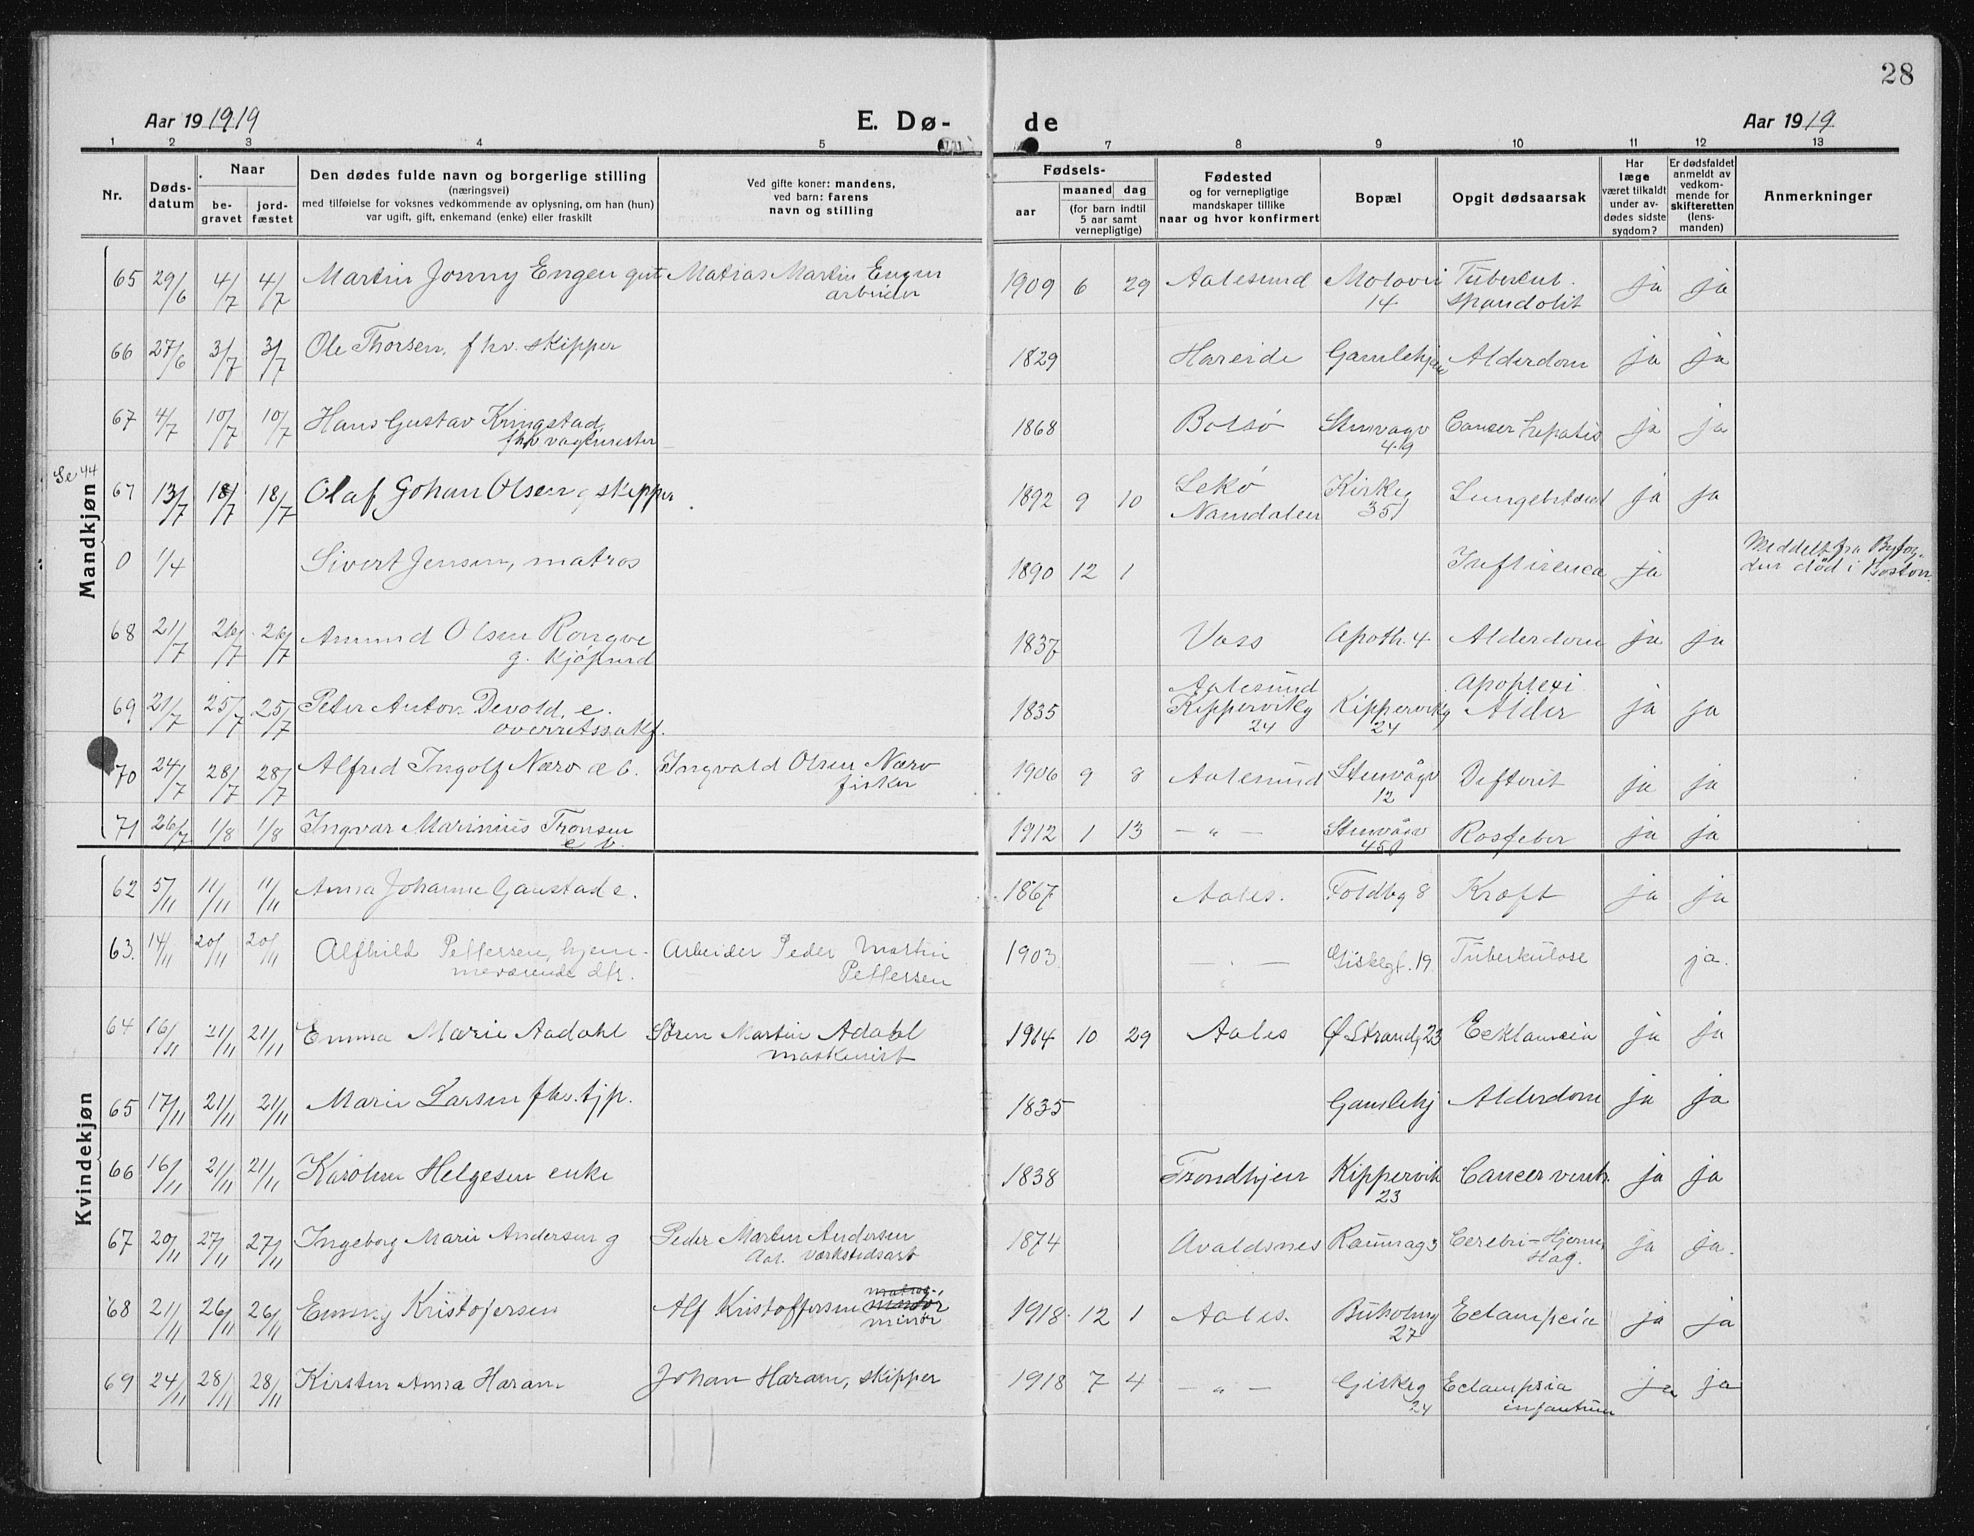 28
Aar 1919 E. Dø- de Aar 1919
1 2 3 4 5 7 8 9 10 11 12 13
Nr. Døds-datum Naar be-gravet jord-fæstet Den dødes fulde navn og borgerlige stilling (næringsvei) med tilføielse for voksnes vedkommende av oplysning, om han (hun) var ugift, gift, enkemand (enke) eller fraskilt Ved gifte koner: mandens, ved barn: farens navn og stilling Fødsels- aar maaned dag (for barn indtil 5 aar samt vernepligtige) Fødested og for vernepligtige mandskaper tillike naar og hvor konfirmert Bopæl Opgit dødsaarsak Har læge været tilkaldt under av-dødes sidste sygdom? Er dødsfaldet anmeldt av vedkom-mende for skifteretten (lens-manden) Anmerkninger
Mandkjøn
65 29/6 4/7 4/7 Martin Jonny Engen gut Matias Martin Engen arbeider 1909 6 29 Aalesund Molovei 14 Tubercul. spondolit ja ja
66 27/6 3/7 3/7 Ole Thorsen, fhv. skipper 1829 Hareide Gamlehjem Alderdom ja ja
67 4/7 10/7 10/7 Hans Gustav Kringstad, fhv vognmester 1868 Bolsø Stenvagv 49 Cancer hepatis ja ja
Se 44
67 13/7 18/7 18/7 Olaf Johan Olsen g skipper 1892 9 10 Lekø Namdalen Kirkeg 35 Lungebetænd ja ja
0 1/4 Sivert Jensen, matros 1890 12 1 Influenca ja Meddelt fra Byfog. den død i Boston
68 21/7 26/7 26/7 Amund Olsen Rongve g. kjøpmd 1837 Voss Apoth. 4 Alderdom ja ja
69 21/7 25/7 25/7 Peter Anton Devold, e. overretssakf. 1835 Aalesund Kippervikg 24 Kippervikg 24 Apoplexi Alder ja ja
70 24/7 28/7 28/7 Alfred Ingolf Nærø æ b. Ingvald Olsen Nærø fisker 1906 9 8 Aalesund Stenvågv 12 Difterit ja ja
71 26/7 1/8 1/8 Ingvar Marinius Tronsen e b. 1912 1 13 — „ — Stenvågv 45 Rosfeber ja ja
Kvindekjøn
62 5/11 11/11 11/11 Anna Johanne Ganstad e. 1867 Aales. Toldbg 8 Kræft ja ja
63. 14/11 20/11 20/11 Alfhild Pettersen, hjem-meværende dtr. Arbeider Peder Martin Pettersen 1903 — „ — Giskegt. 19 Tuberkulose ja.
64 16/11 21/11 21/11 Emma Marie Aadahl Søren Martin Adahl maskinist 1914 10 29 Aales Ø Strandg 23 Ecklamcia ja ja
65 17/11 21/11 21/11 Marie Larsen fhv. tjp. 1835 Gamlehj Alderdom ja ja
66 16/11 21/11 21/11 Karoline Helgesen enke 1838 Trondhjem Kippervik 23 Cancer ventr. ja ja
67 20/11 27/11 27/11 Ingeborg Marie Andersen g Peder Martin Andersen Aal. værkstedsarb 1874 Avaldsnes Raumag 3 Cerebri-Hjerne Hag. ja ja.
68 21/11 26/11 26/11 Emmy Kristofersen Alf Kristoffersen matros minør 1918 12 1 Aales. Buholmg 27 Eclampcia ja ja
69 24/11 28/11 28/11 Kirsten Anna Haram Johan Haram, skipper 1918 7 4 — „ — Giskeg 24 Eclampsia infantum ja ja